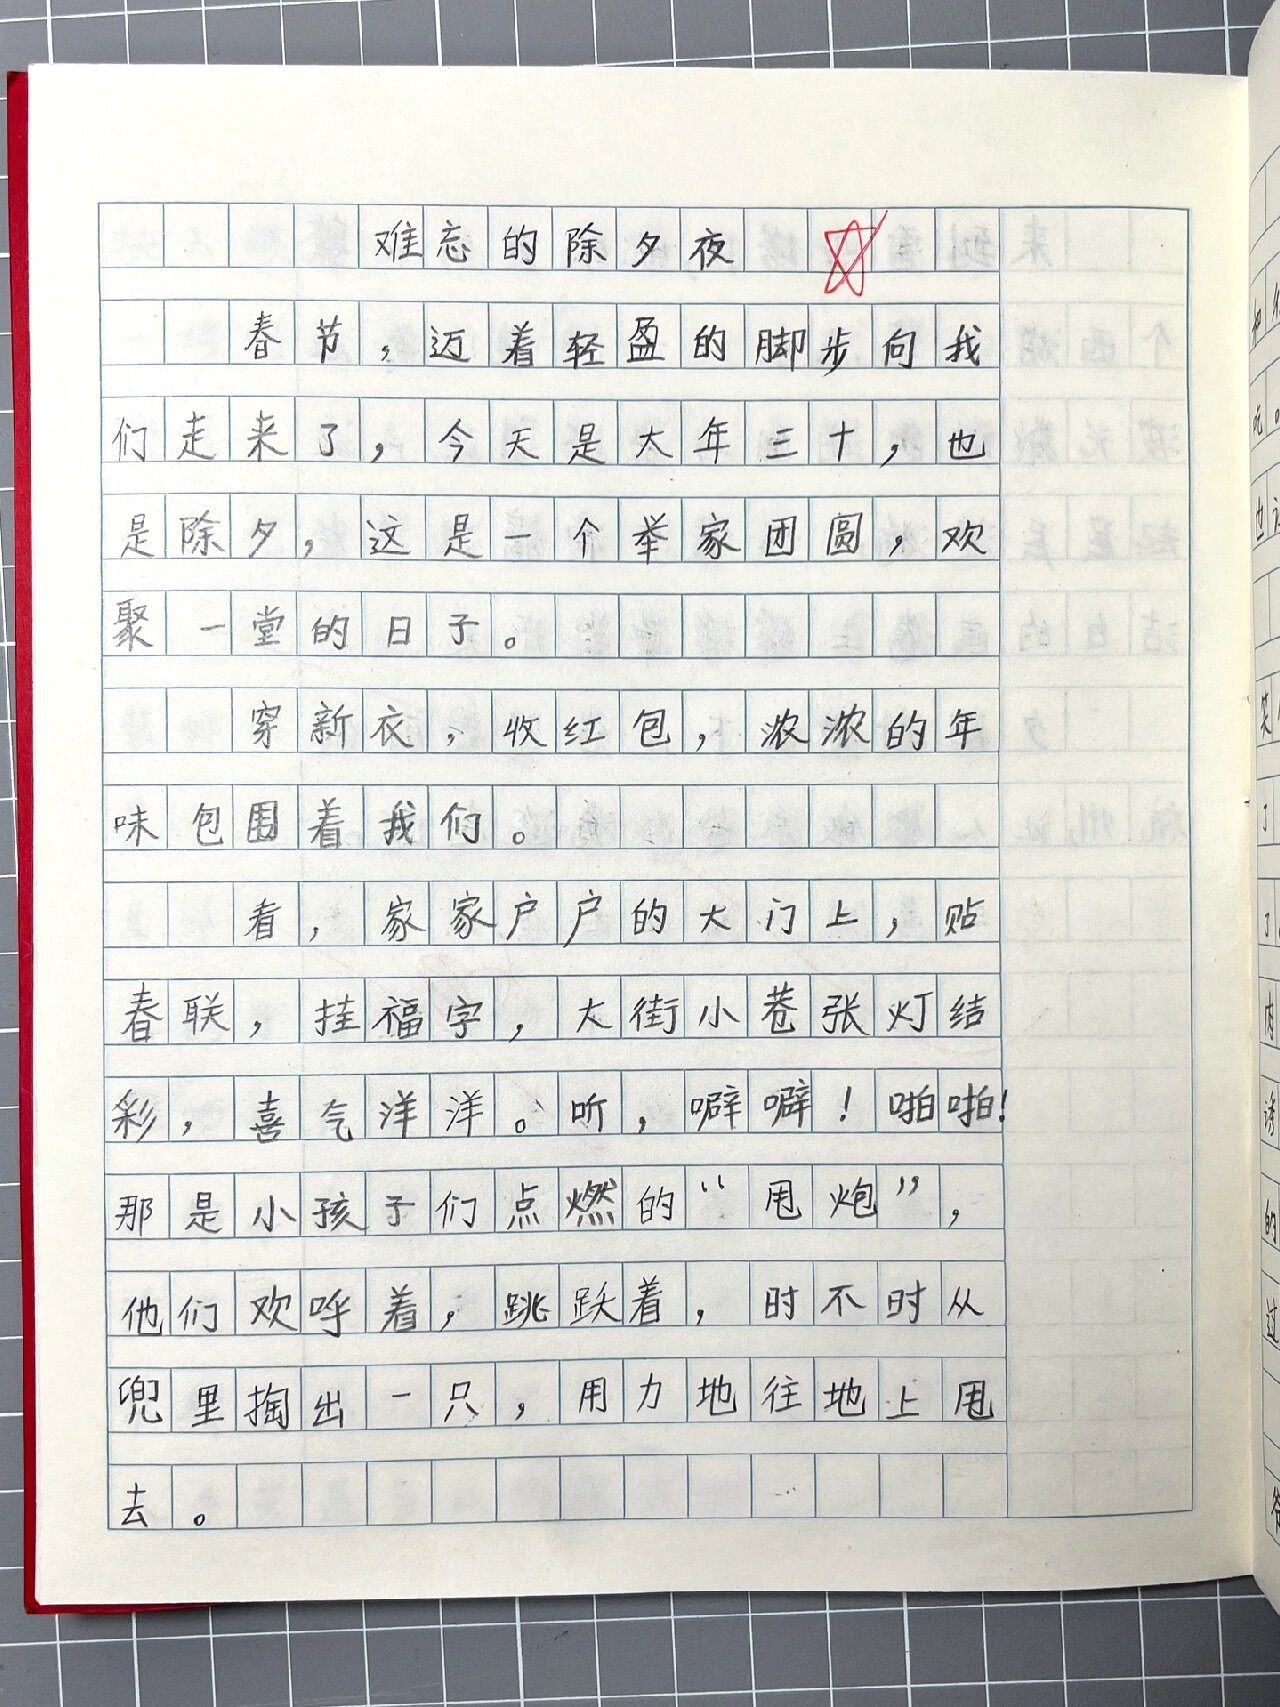 难忘的除夕夜
春节,迈着轻盈的脚步向我
们走来了,今天是大年三十,也
是除夕,这是一个举家团圆,欢
聚一堂的日子。
穿新衣,收红包,浓浓的年
味包围着我们。
看,家家户户的大门上,贴
春联,挂福字,大街小巷张灯结
彩,喜气洋洋。听,噼噼!啪啪!
那是小孩子们点燃的“甩炮”,
他们欢呼着,跳跃着,时不时从
兜里掏出一只,用力地往地上甩
去。